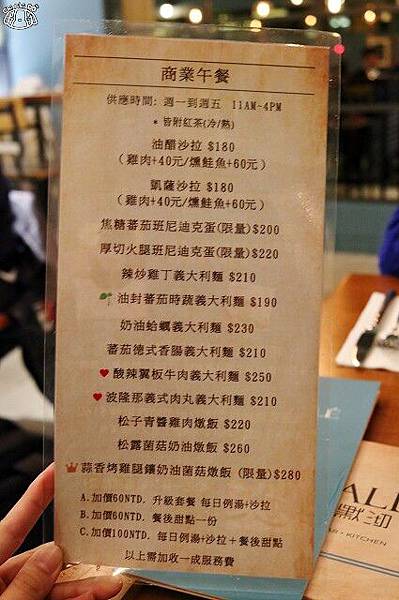 商業午餐
供應時間: 週一到週五 11AM~4PM
* 皆附紅茶(冷/熱)
油醋沙拉 $180
(雞肉+40元/燻鮭魚+60元)
凱薩沙拉 $180
(雞肉+40元/燻鮭魚+60元)
焦糖蕃茄班尼迪克蛋(限量)$200
厚切火腿班尼迪克蛋(限量)$220
辣炒雞丁義大利麵 $210
油封蕃茄時蔬義大利麵 $190
奶油蛤蠣義大利麵 $230
蕃茄德式香腸義大利麵 $210
酸辣翼板牛肉義大利麵 $250
波隆那義式肉丸義大利麵 $210
松子青醬雞肉燉飯 $220
松露菌菇奶油燉飯 $260
蒜香烤雞腿鑲奶油菌菇燉飯 (限量)$280
A.加價60NTD. 升級套餐 每日例湯+沙拉
B.加價60NTD. 餐後甜點一份
C.加價100NTD. 每日例湯+沙拉+餐後甜點
以上需加收一成服務費
KITCHEN